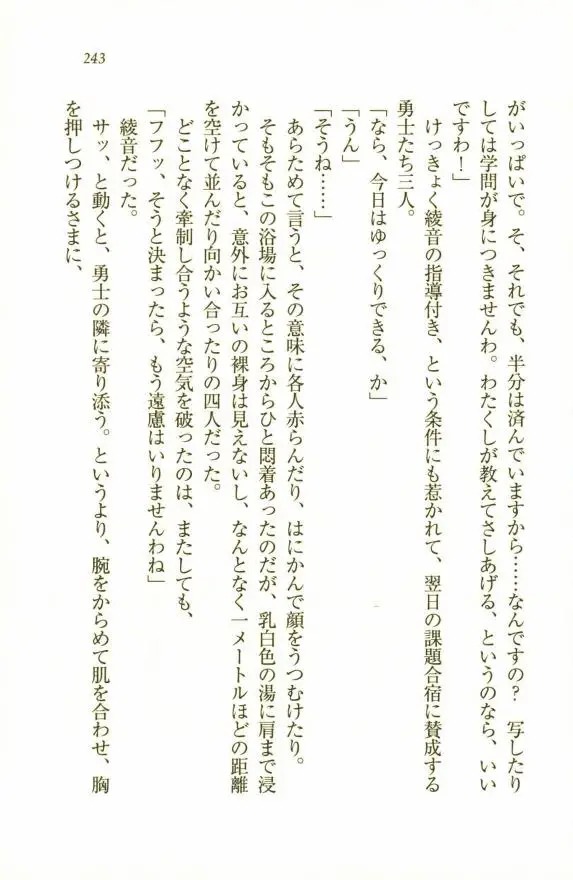 243
がいっぱいで。そ、それでも、半分は済んでいますから……なんですの？　写したり
しては学問が身につきませんわ。わたくしが教えてさしあげる、というのなら、いい
ですわ！」
けっきょく綾音の指導付き、という条件にも惹かれて、翌日の課題合宿に賛成する
勇士たち三人。
「なら、今日はゆっくりできる、か」
「うん」
「そうね……」
あらためて言うと、その意味に各人赤らんだり、はにかんで顔をうつむけたり。
そもそもこの浴場に入るところからひと悶着あったのだが、乳白色の湯に肩まで浸
かっていると、意外にお互いの裸身は見えないし、なんとなく一メートルほどの距離
を空けて並んだり向かい合ったりの四人だった。
どことなく牽制し合うような空気を破ったのは、またしても、
「フフッ、そうと決まったら、もう遠慮はいりませんわね」
綾音だった。
サッ、と動くと、勇士の隣に寄り添う。というより、腕をからめて肌を合わせ、胸
を押しつけるさまに、